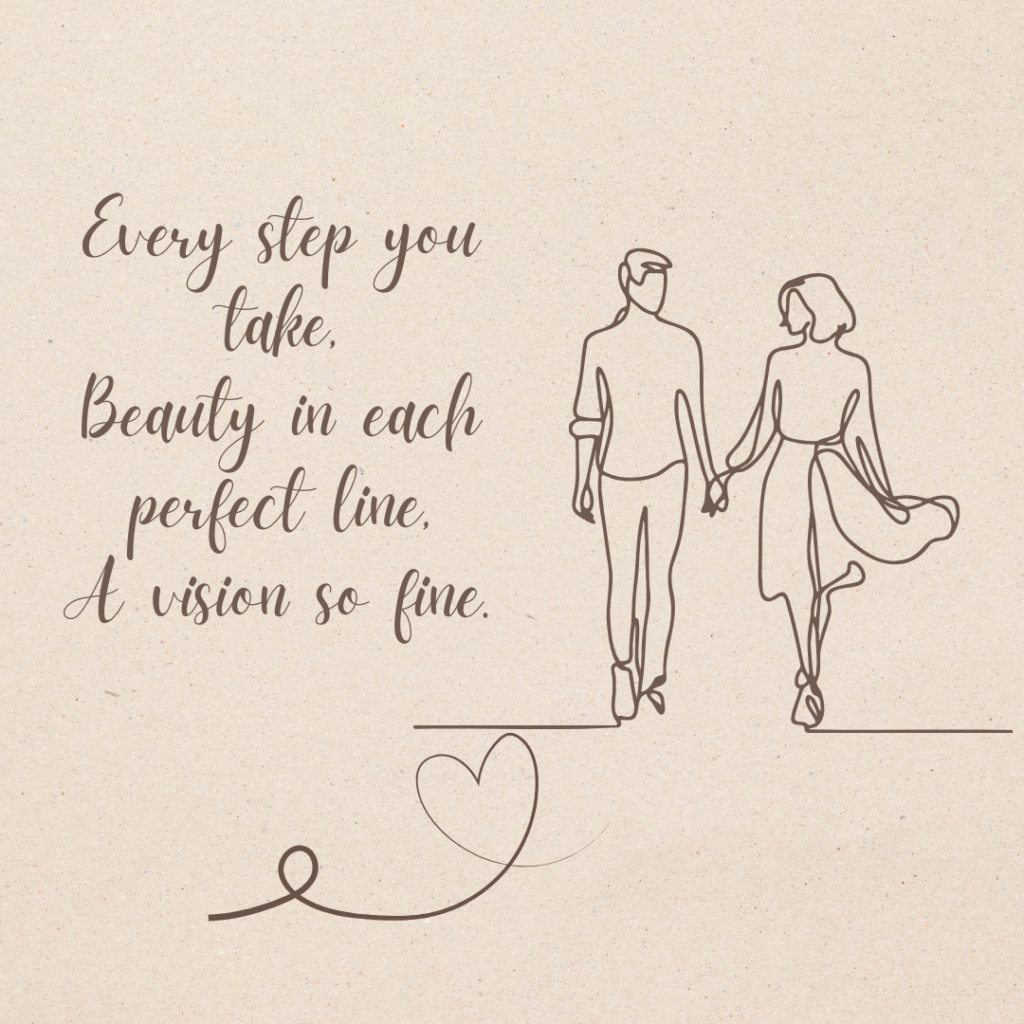 Every step you
take,
Beauty in each
perfect line,
A vision so fine.